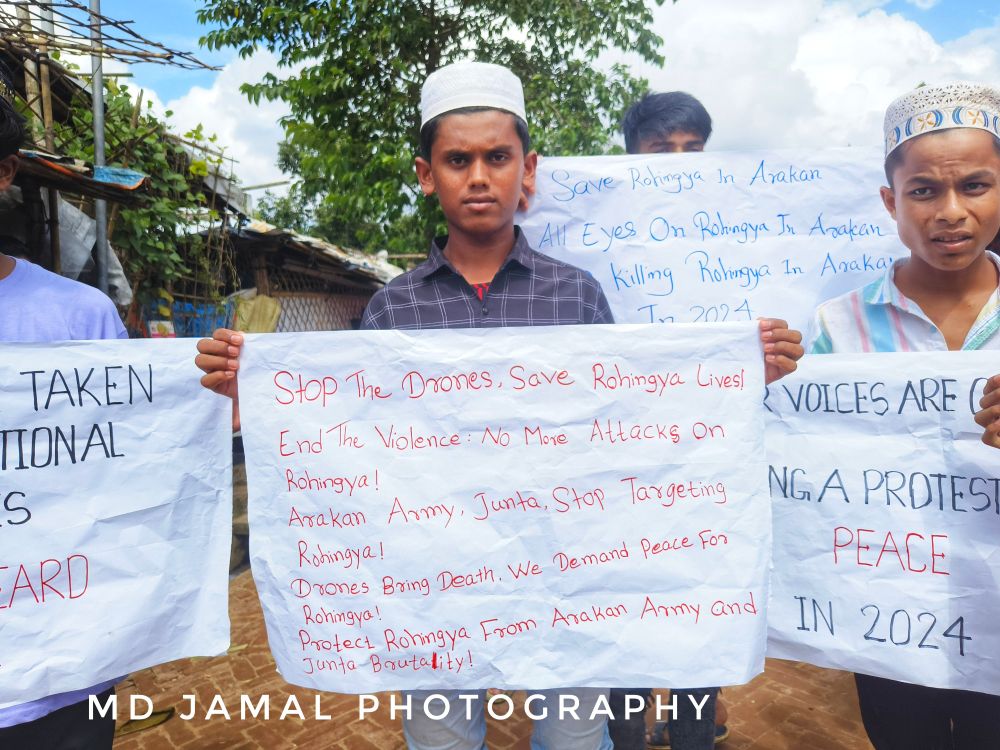 Save Rohingya In Arakan
All Eyes On Rohingya In Arakan
Killing Rohingya In Araka
In 2024
TAKEN
TIONAL
ES
EARD
Stop The Drones, Save Rohingya Lives!
End The Violence: No More Attacks On
Rohingya!
Arakan Army, Junta, Stop Targeting
Rohingya!
Drones Bring Death. We Demand Peace For
Rohingya!
Protect Rohingya From Arakan Army and
Junta Brutality!
R VOICES ARE
NG A PROTEST
PEACE
IN 2024
MD JAMAL PHOTOGRAPHY